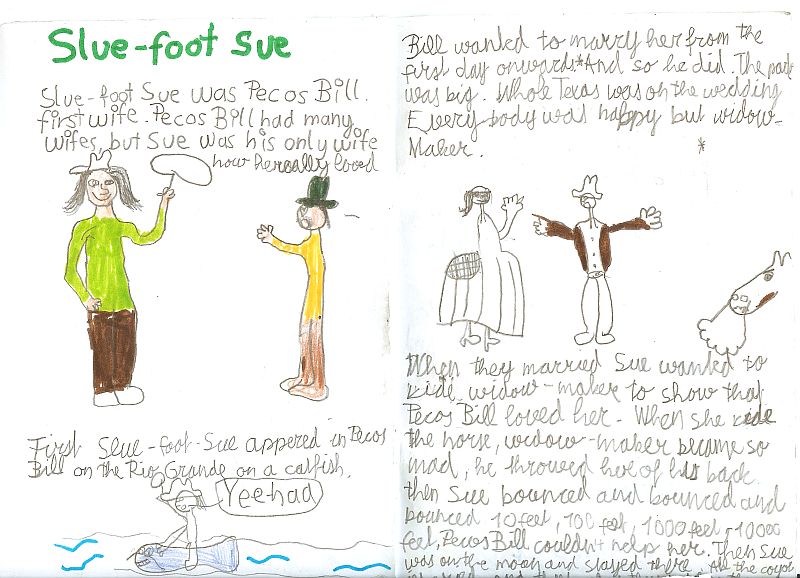 Slue-foot Sue
Slue-foot Sue was Pecos Bill.
first wife. Pecos Bill had many
wifes, but Sue was his only wife
how he really loved
First Slue-foot-Sue appered in Pecos
Bill on the Rio Grande on a catfish.
Yeehad
Bill wanted to marry her from the
first day onwards.*And so he did. The
was big. Whole Texas was on the wedding
Every body was happy but widow-
Maker. *
When they married Sue wanted to
ride widow-maker to show that
Pecos Bill loved her. When she ride
the horse, widow-maker became so
mad, he throwed her of his back.
then Sue bounced and bounced and
bounced 10 feet, 100 feet, 1000 feet, 10000
feet, Pecos Bill couldn't help her. Then Sue
was on the moon and stayed there. All the